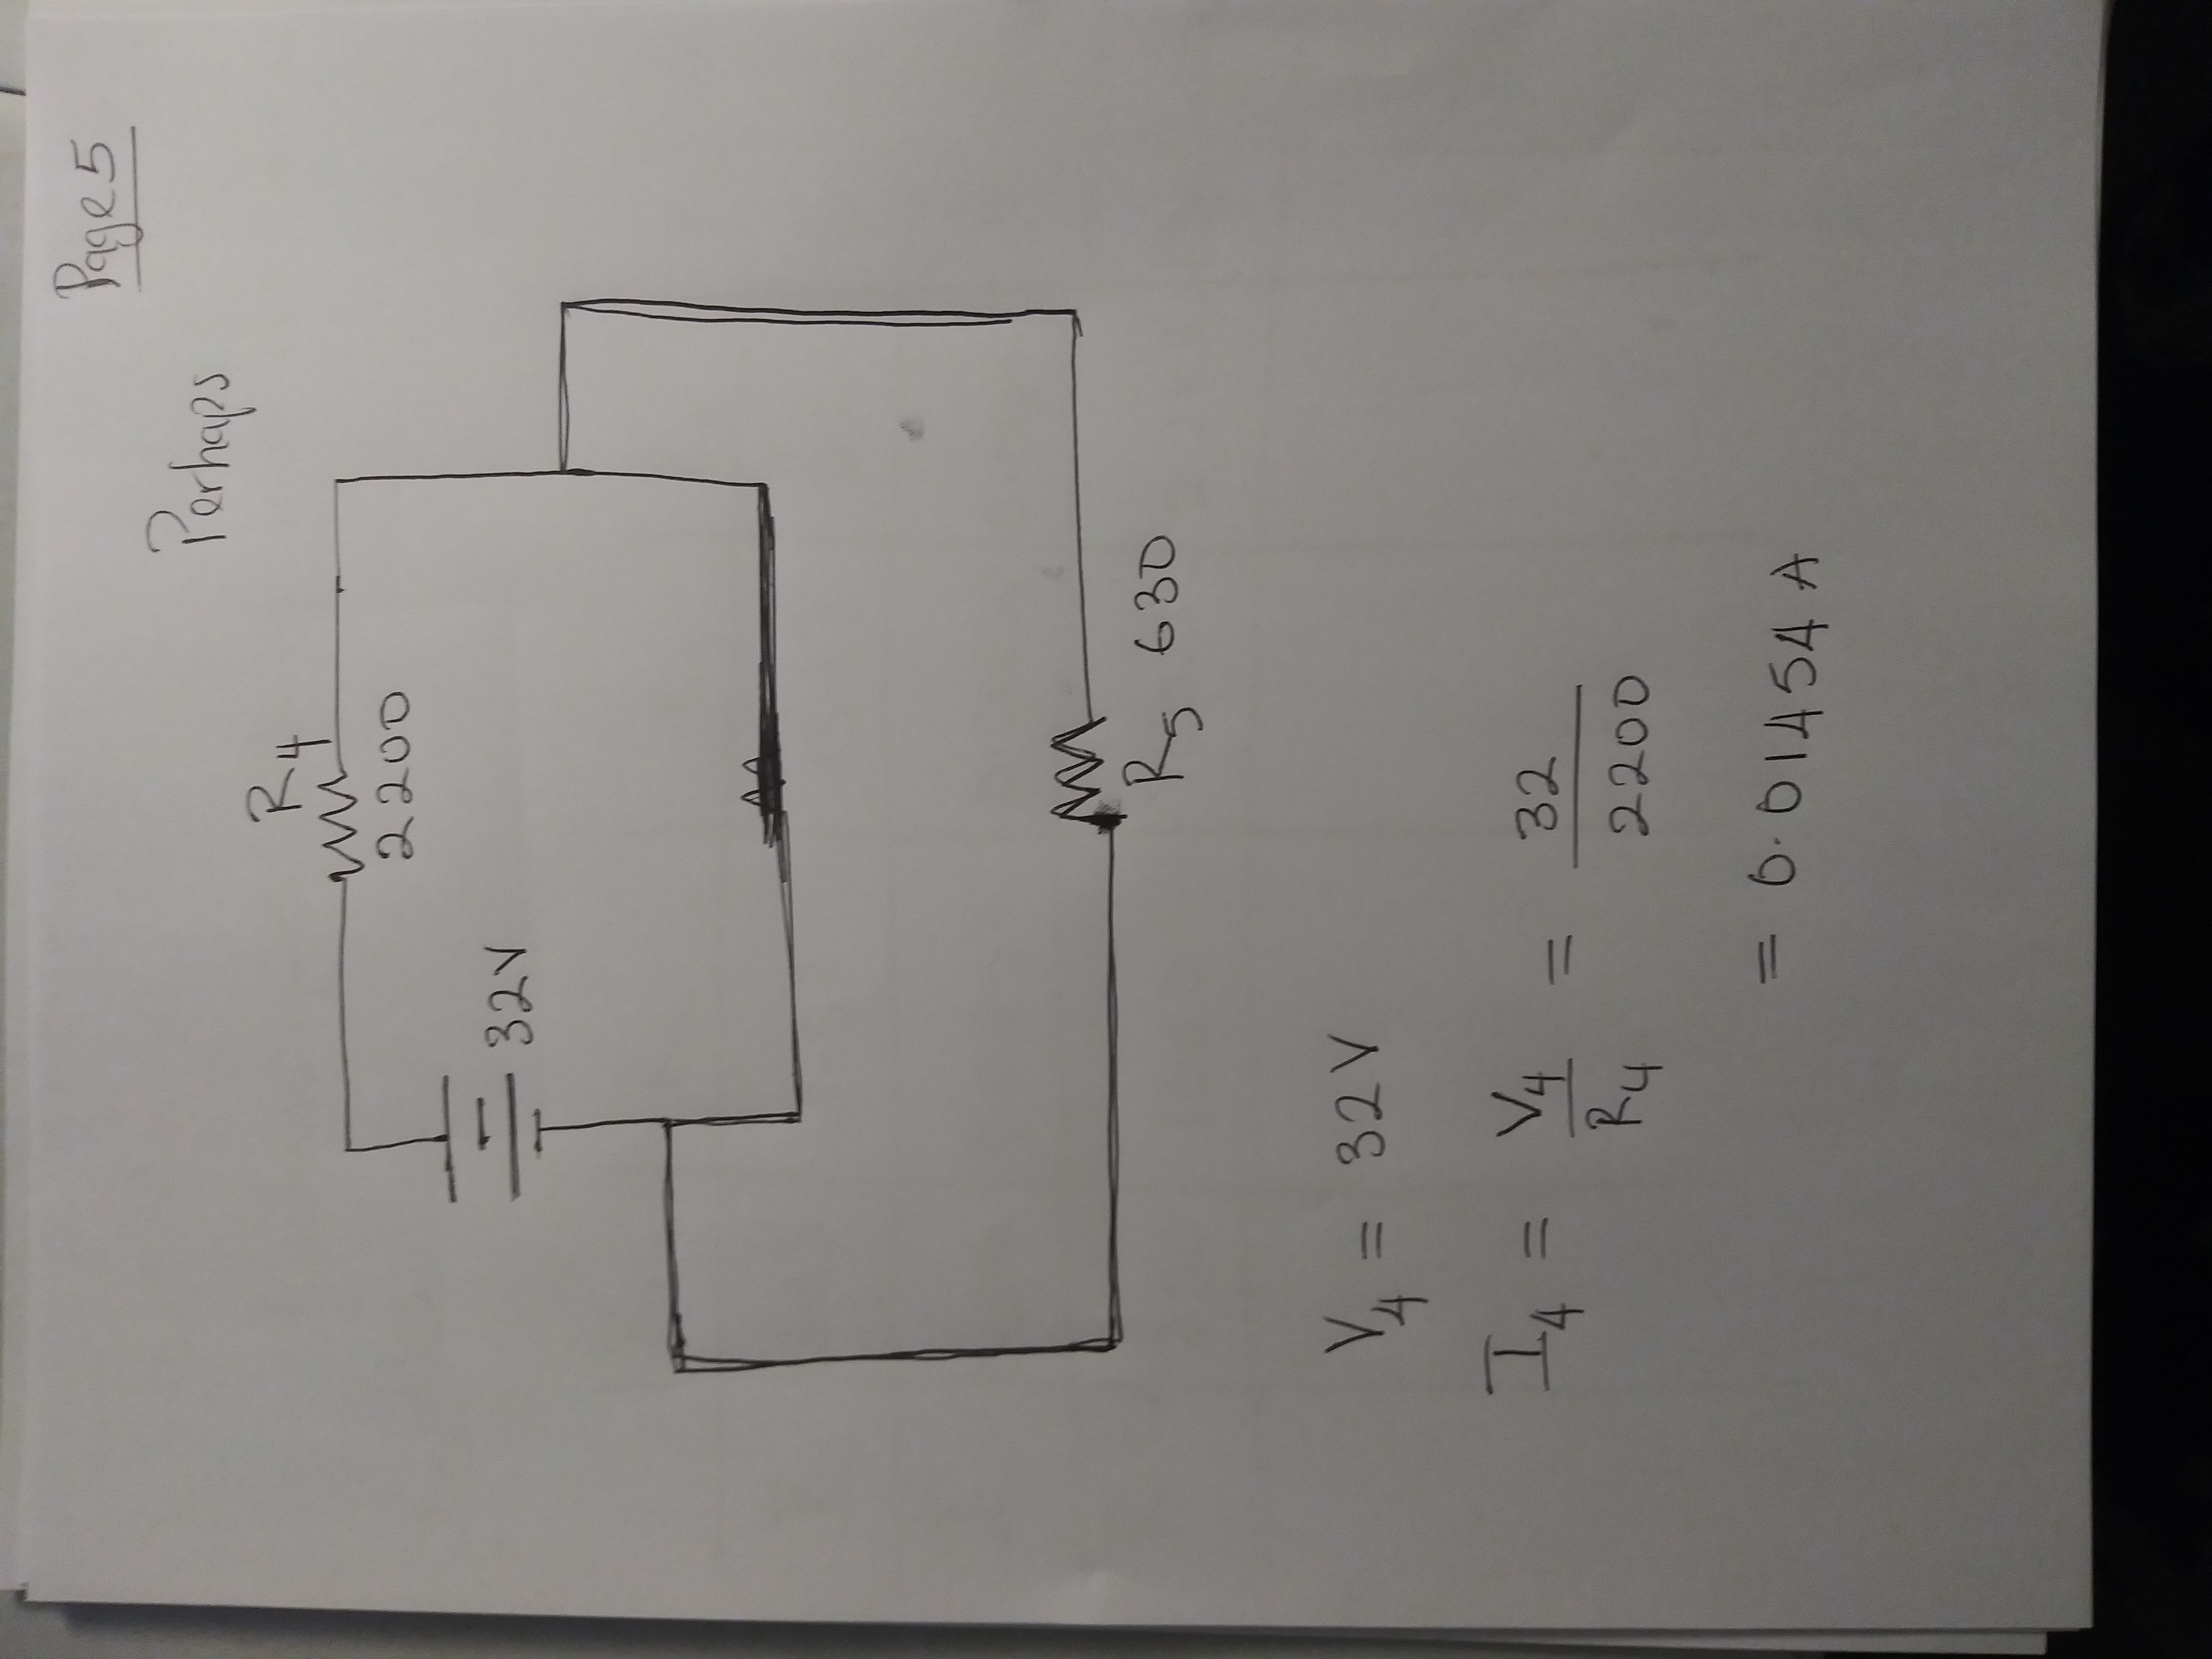 Page 5
Perhaps
R4
2200
32V
R5 630
V4 = 32V
I4 = V4/R4 = 32/2200
= 0.01454 A